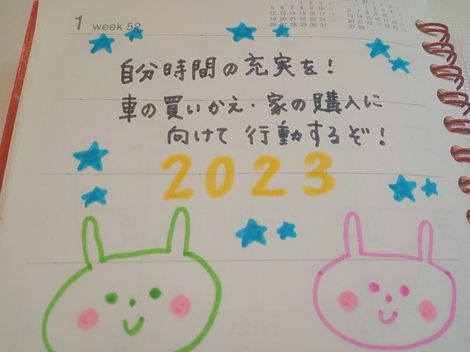 1 week 52
自分時間の充実を!
車の買いかえ・家の購入に
向けて 行動するぞ!
2023